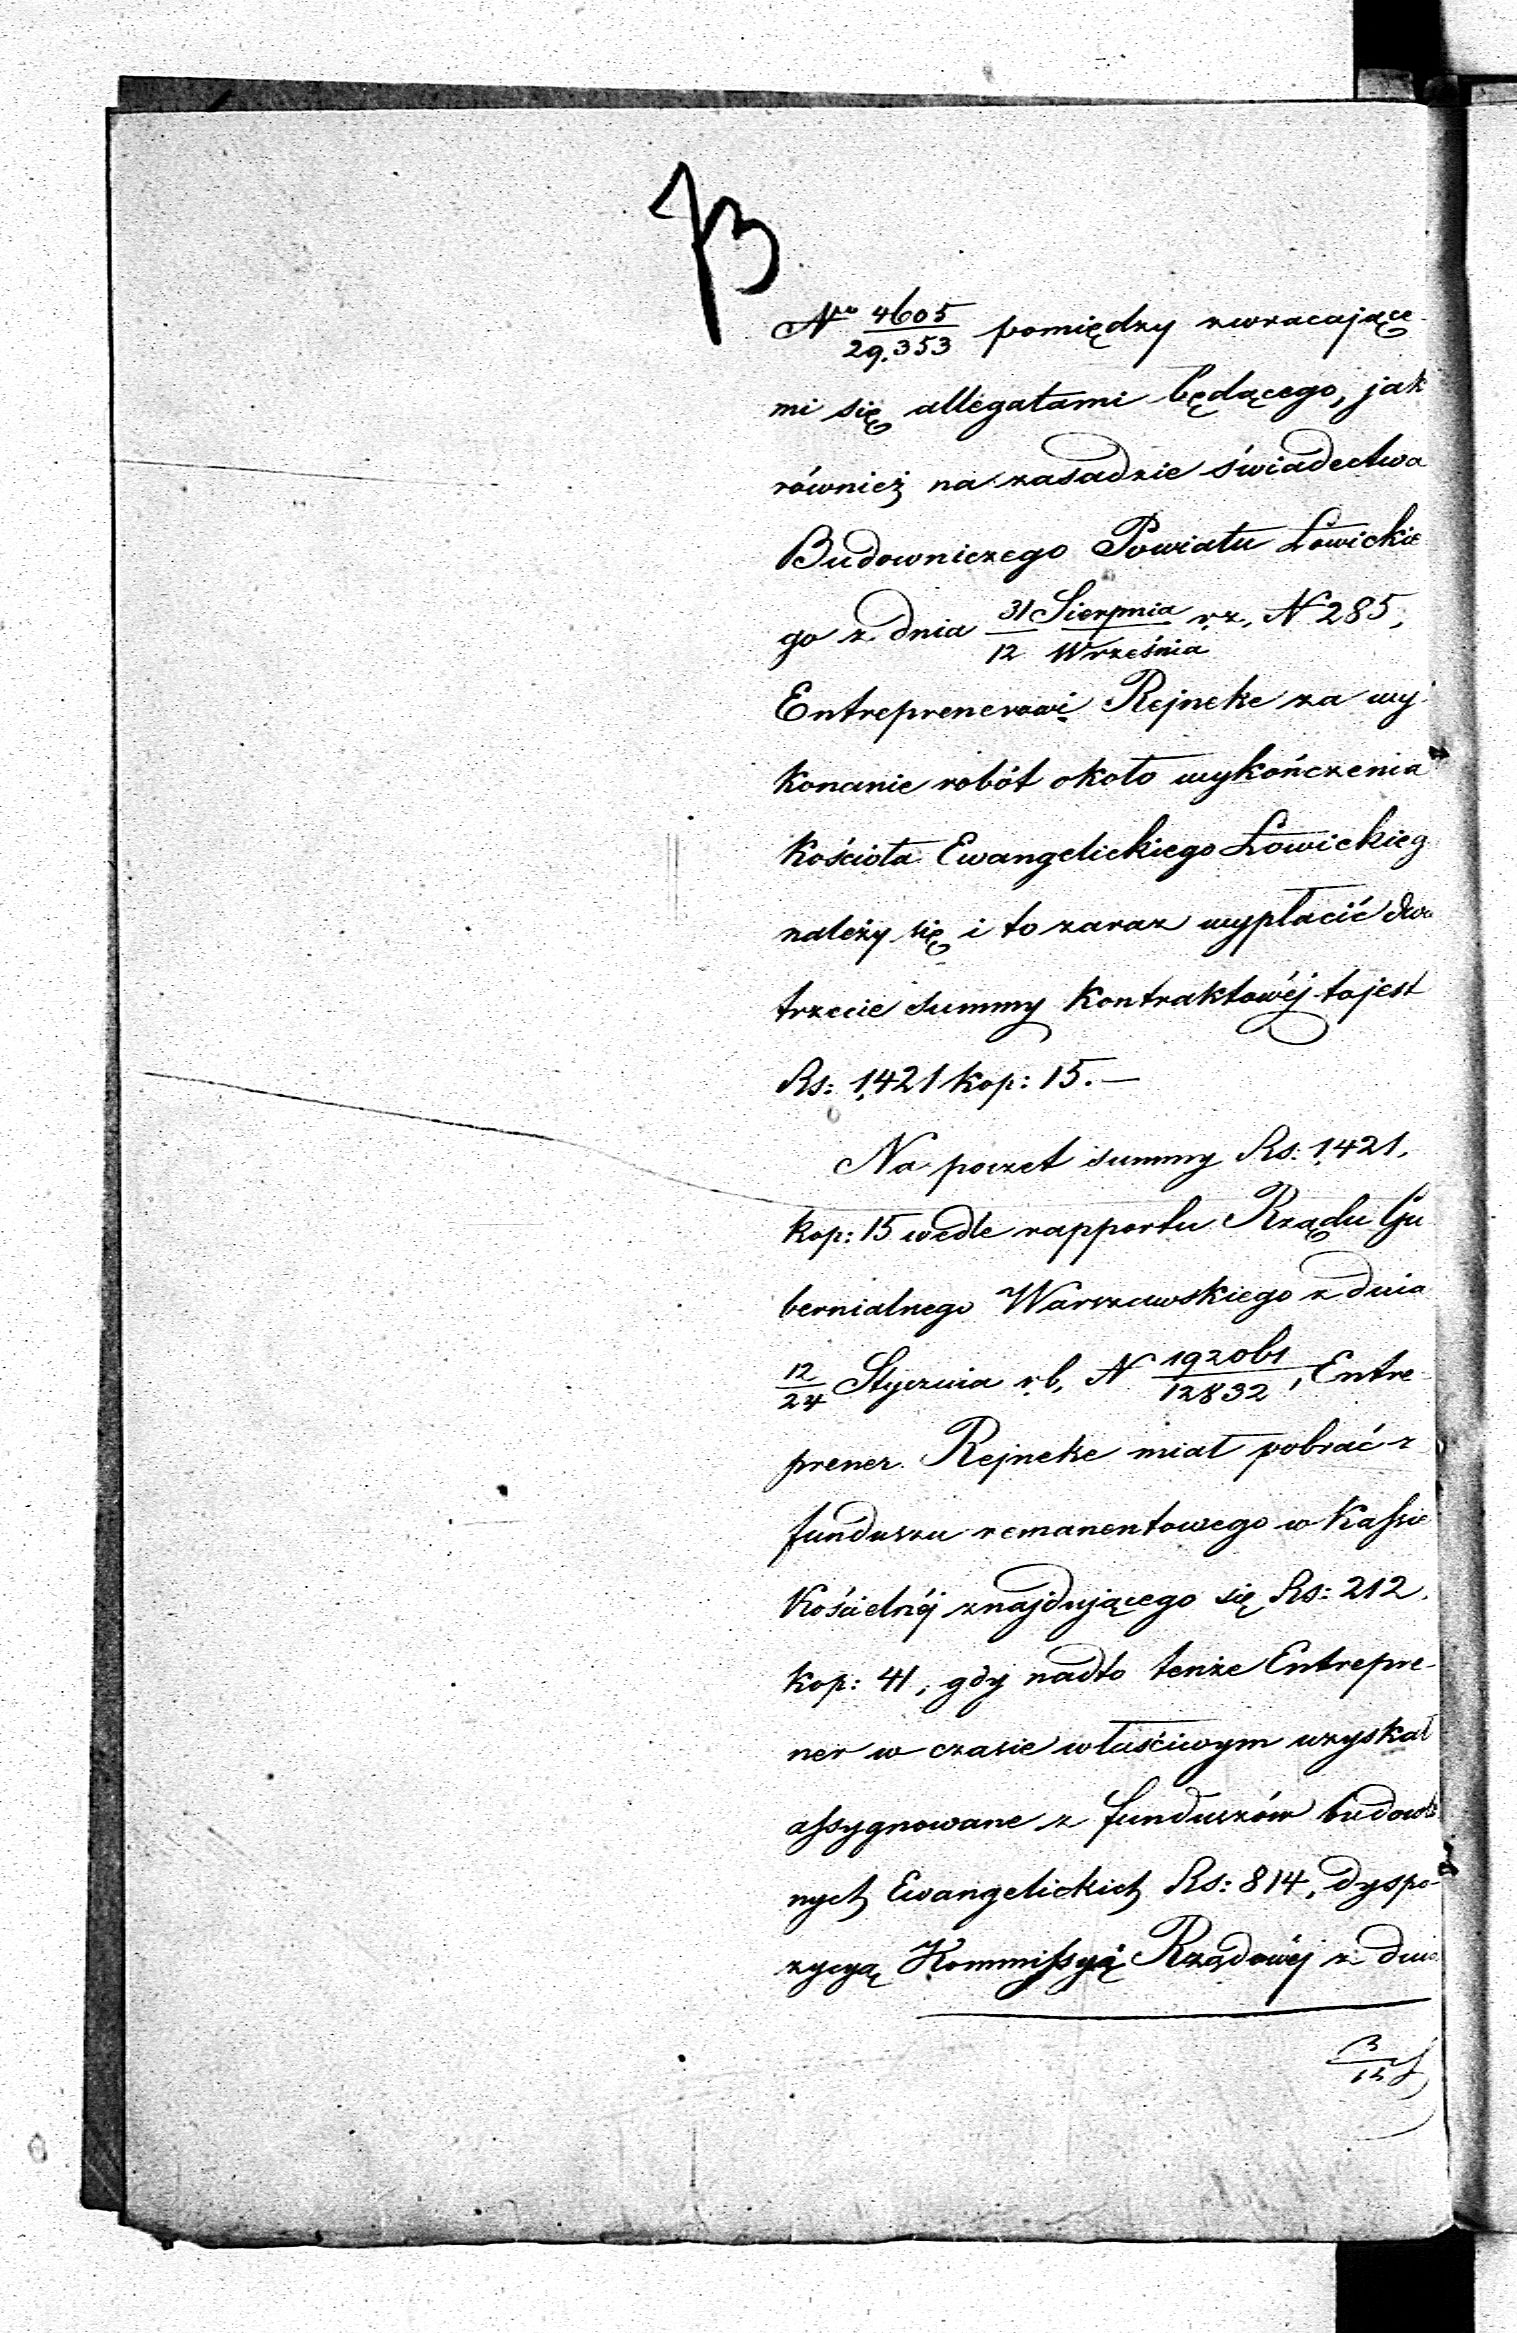 No 4605/29.353 pomiędzy zwracające-
mi się allegatami będącego, jak
również na zasadzie świadectwa
Budowniczego Powiatu Łowickie
go z dnia 31 Sierpnia/12 Września r.z. N 285,
Entreprenerowi Rejneke za wy-
konanie robót około wykończenia
Kościoła Ewangelickiego Łowickieg
należy się i to zaraz wypłacić dwa
trzecie summy Kontraktowéj to jest
Rs: 1,421 kop: 15. —
Na poczet summy Rs: 1,421.
kop: 15 wedle rapportu Rządu Gu
bernialnego Warszawskiego z dnia
12/24 Stycznia r.b. N /12832, Entre-
prener Rejneke miał pobrać z
funduszu remanentowego w Kassie
Kościelnéj znajdującego się Rs: 212.
kop: 41, gdy nadto tenże Entrepre-
ner w czasie właściwym uzyskał
assygnowane z funduszów budowl
nych Ewangelickich Rs: 814, dyspo-
zycyą Kommissyi Rządowéj z dnia